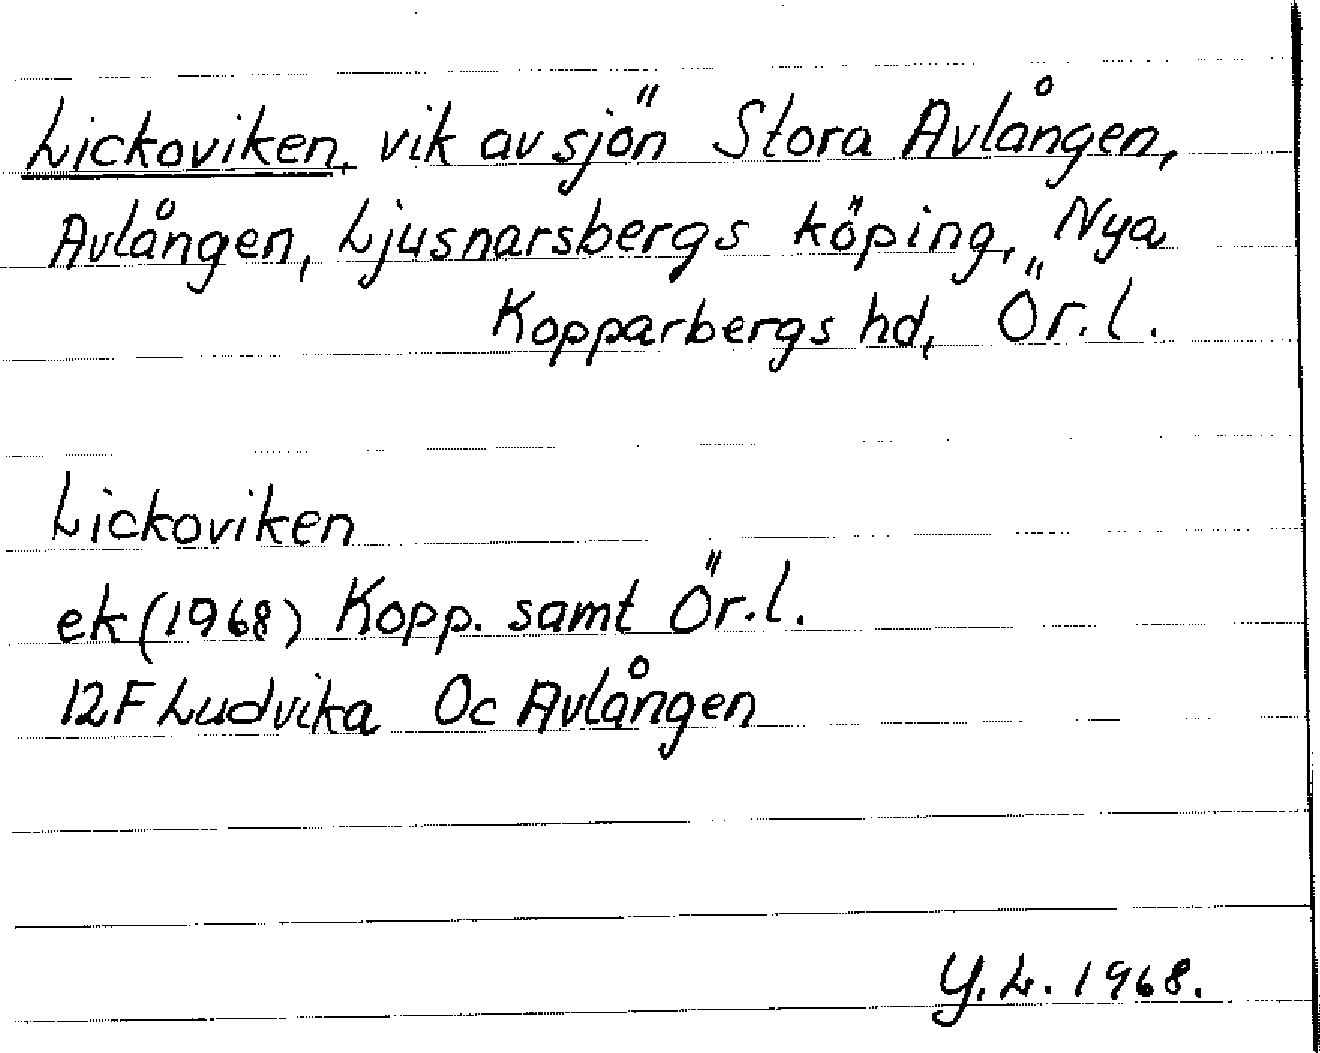 Lickoviken, vik av sjön Stora Avlången,
Avlången, Ljusnarsbergs köping, Nya
Kopparbergs hd, Ör. l.
Lickoviken
ek (1968) Kopp. samt Ör. l.
12F Ludvika Oc Avlången
Y. L. 1968.